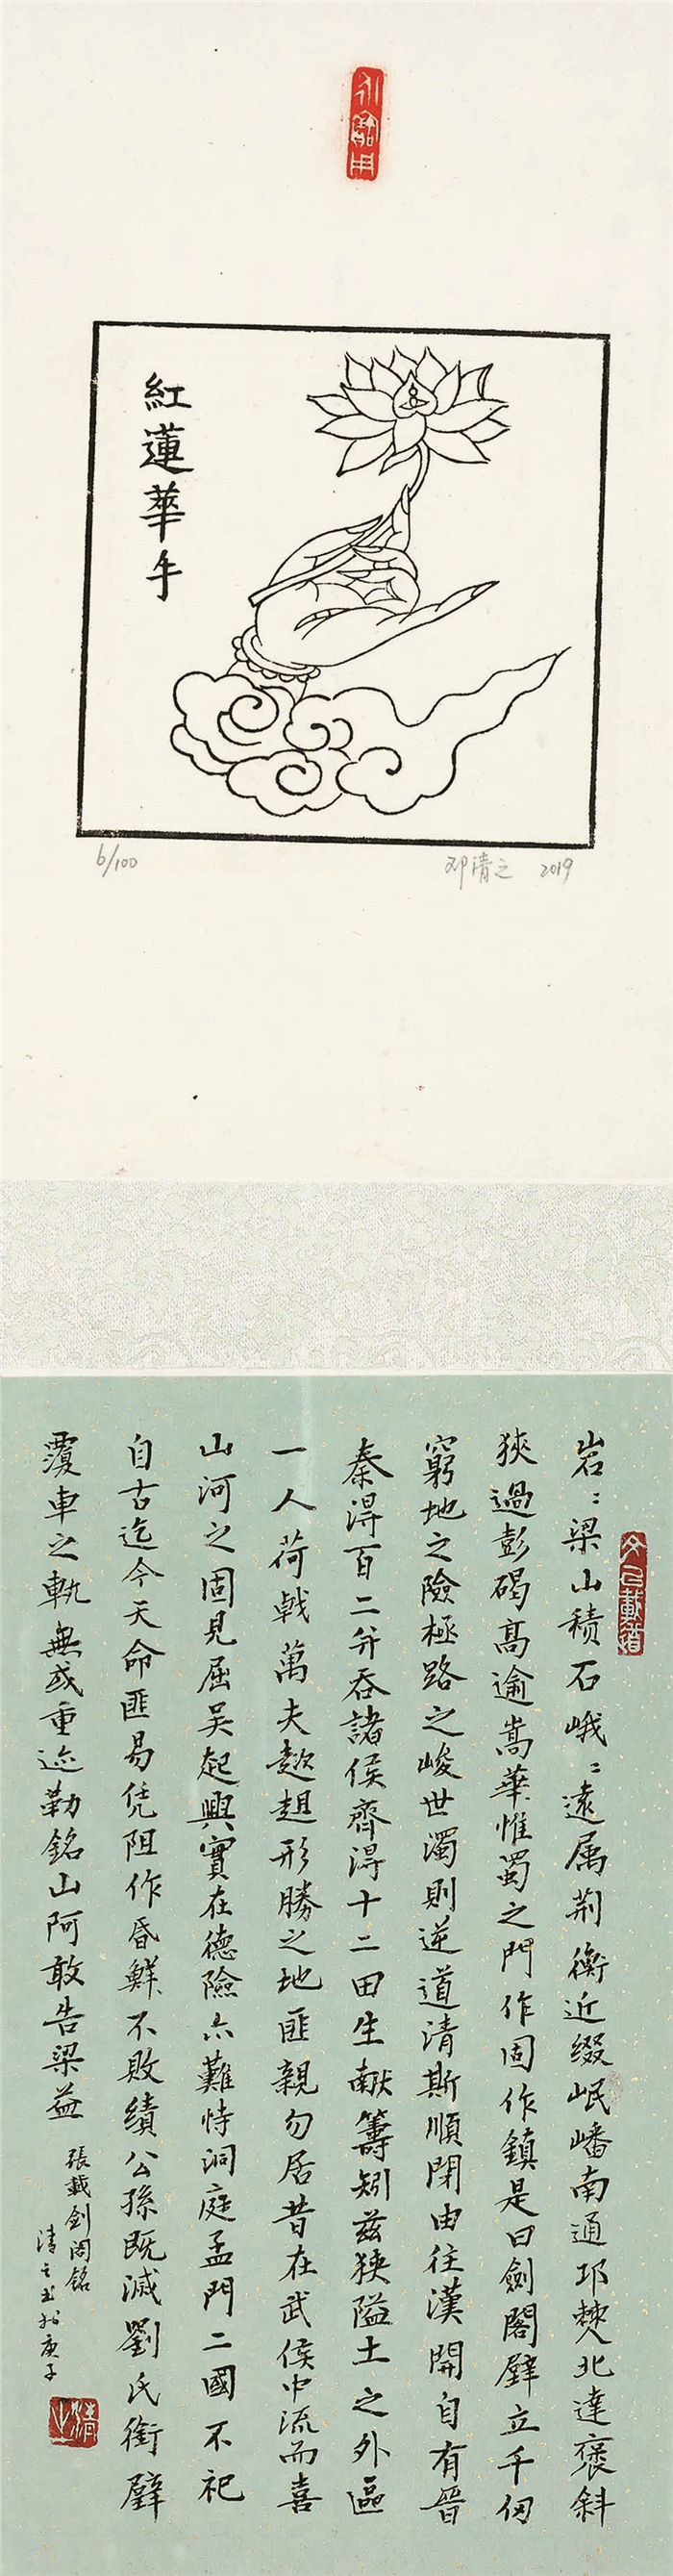 紅蓮華手
6/100
邓清之 2019
文以載道
岩〻梁山積石峨〻遠属荆衡近缀岷嶓南通邛僰北達褒斜
狹過彭碣高逾嵩華惟蜀之門作固作鎮是曰劍閣壁立千仞
窮地之險極路之峻世濁則逆道清斯順閉由往漢開自有晉
秦得百二并吞諸侯齊得十二田生献籌矧兹狹隘土之外區
一人荷戟萬夫趑趄形勝之地匪親勿居昔在武侯中流而喜
山河之固見屈吴起興實在德險亦難恃洞庭孟門二國不祀
自古迄今天命匪易凭阻作昏鮮不敗績公孫既滅劉氏銜璧
覆車之軌無或重迹勒銘山阿敢告梁益
張載劍阁銘
清之书於庚子
清之